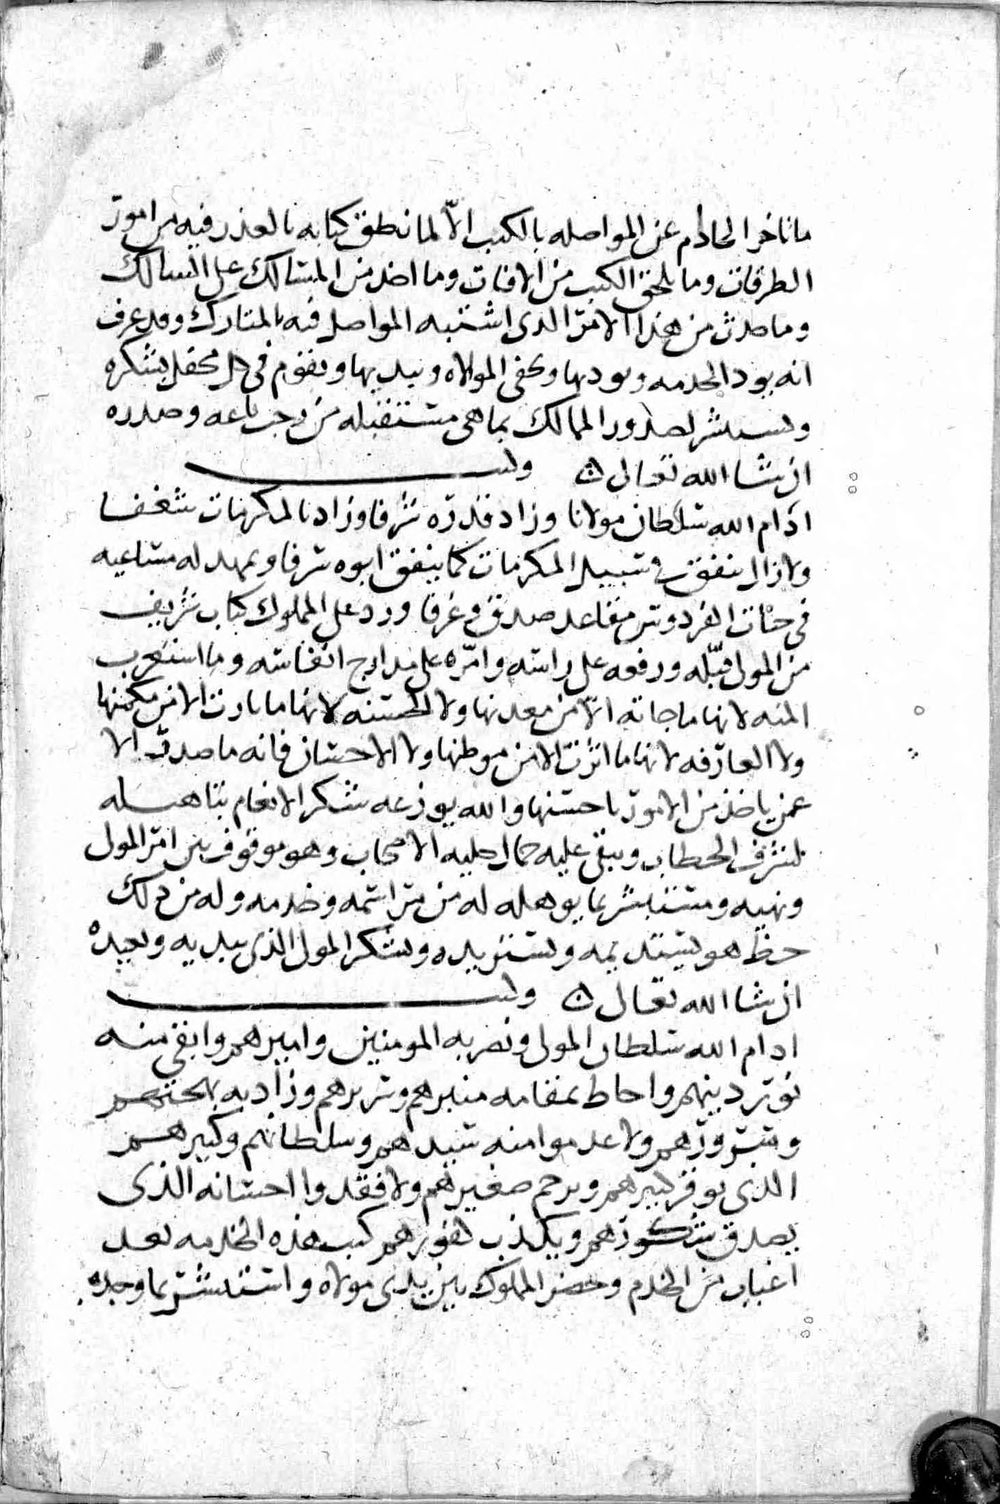 ما تاخر الخادم عن المواصله بالكتب الّا لما نطق كتابه بالعذر فيه من امور
الطرقات وما يلحق الكتب من الافات وما اخذ من المسالك على السالك
وما حدث من هذا الامر الذى اشتبه المواصل فيه بالمتارك وقد عرف
انه يود الخدمه ويودبها ويخفى الموالاه ويبديها ويقوم فى كل محفل بشكره
ويستبشر لصدور الممالك بما هى مستقبله من رحب باعه وصدره
ان شا الله تعالى وله
ادام الله سلطان مولانا وزاد قدره شرفا وزاد بالمكرمات شغفا
ولا زال ينفق فى سبيل المكرمات كما ينفق ابوه سرفا ويمهد له مساعيه
فى جنات الفردوس مقاعد صدق وغرفا ورد على المملوك كتاب شريف
من المولى قبّله ورفعه على راسه وامرّه على مدارج انفاسه وما استغرب
المنه لانها ما جاته الّا من معدنها ولا الحسنه لانها ما بارت الا من مكمنها
ولا العارفه لانها ما اثرت الا من موطنها ولا الاحسان فانه ما صدر الا
عمن ياخذ من الامور باحسنها والله يوزعه شكر الانعام بتاهيله
لشرف الخطاب ويبقى عليه جمال حليه الاصحاب وهو موقوف بين امر المولى
ونهيه ومستبشر بما يوهله له من مراسمه وخدمه وله من ذلك
حظ هو يستديمه ويستزيده ويشكر المولى الذى يبديه ويعيده
ان شا الله تعالى وله
ادام الله سلطان المولى ونصر به المومنين واميرهم وابقى منه
نور دينهم واحاط بمقامه منبرهم وسريرهم وزاد به بهجتهم
وسرورهم ولا عدموا منه سيدهم وسلطانهم وكبيرهم
الذى يوقر كبيرهم ويرحم صغيرهم ولا فقدوا احسانه الذى
يصدق شكورهم ويكذب كفورهم كتب هذه الخدمه بعد
اغباب من الخدم وحضر المملوك بين يدى مولاه واستبشر بما وجده